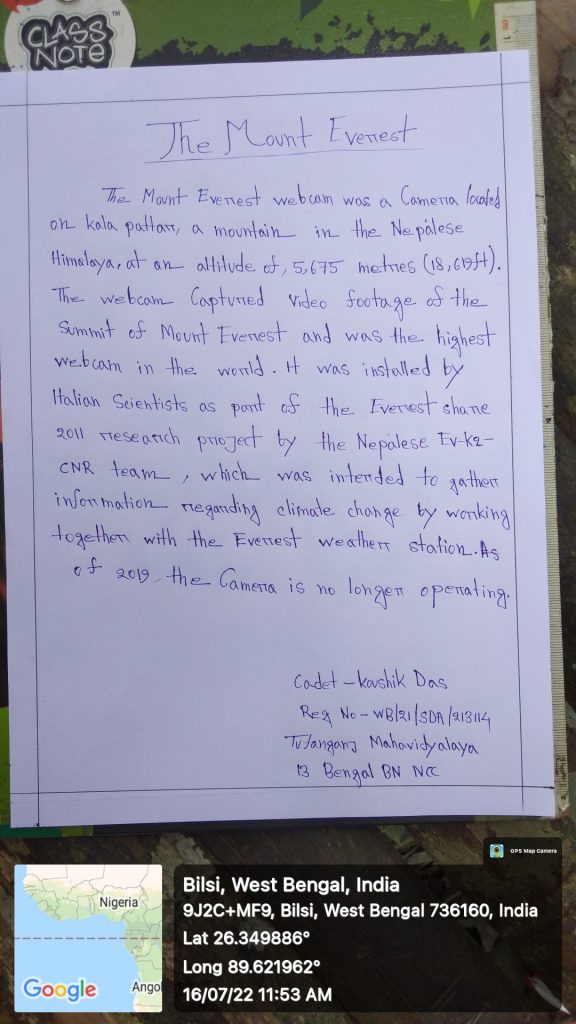 CLASS
NOTE
The Mount Everest
The Mount Everest webcam was a Camera located
on kala pattarr, a mountain in the Nepálese
Himalaya, at an altitude of, 5,675 metres (18,619ft).
The webcam Captured video footage of the
Summit of Mount Everest and was the highest
webcam in the world. It was installed by
Italian Scientists as part of the Everest share
2011 research project by the Nepálese Ev-K2-
CNR team, which was intended to gather
information regarding climate change by working
together with the Everest weather station. As
of 2019, the Camera is no longer operating.
Cadet - Koushik Das
Reg No - WB/21/SDA/213114
Tufanganj Mahavidyalaya
13 Bengal BN NCC
GPS Map Camera
Nigeria
Angol
Google
Bilsi, West Bengal, India
9J2C+MF9, Bilsi, West Bengal 736160, India
Lat 26.349886°
Long 89.621962°
16/07/22 11:53 AM